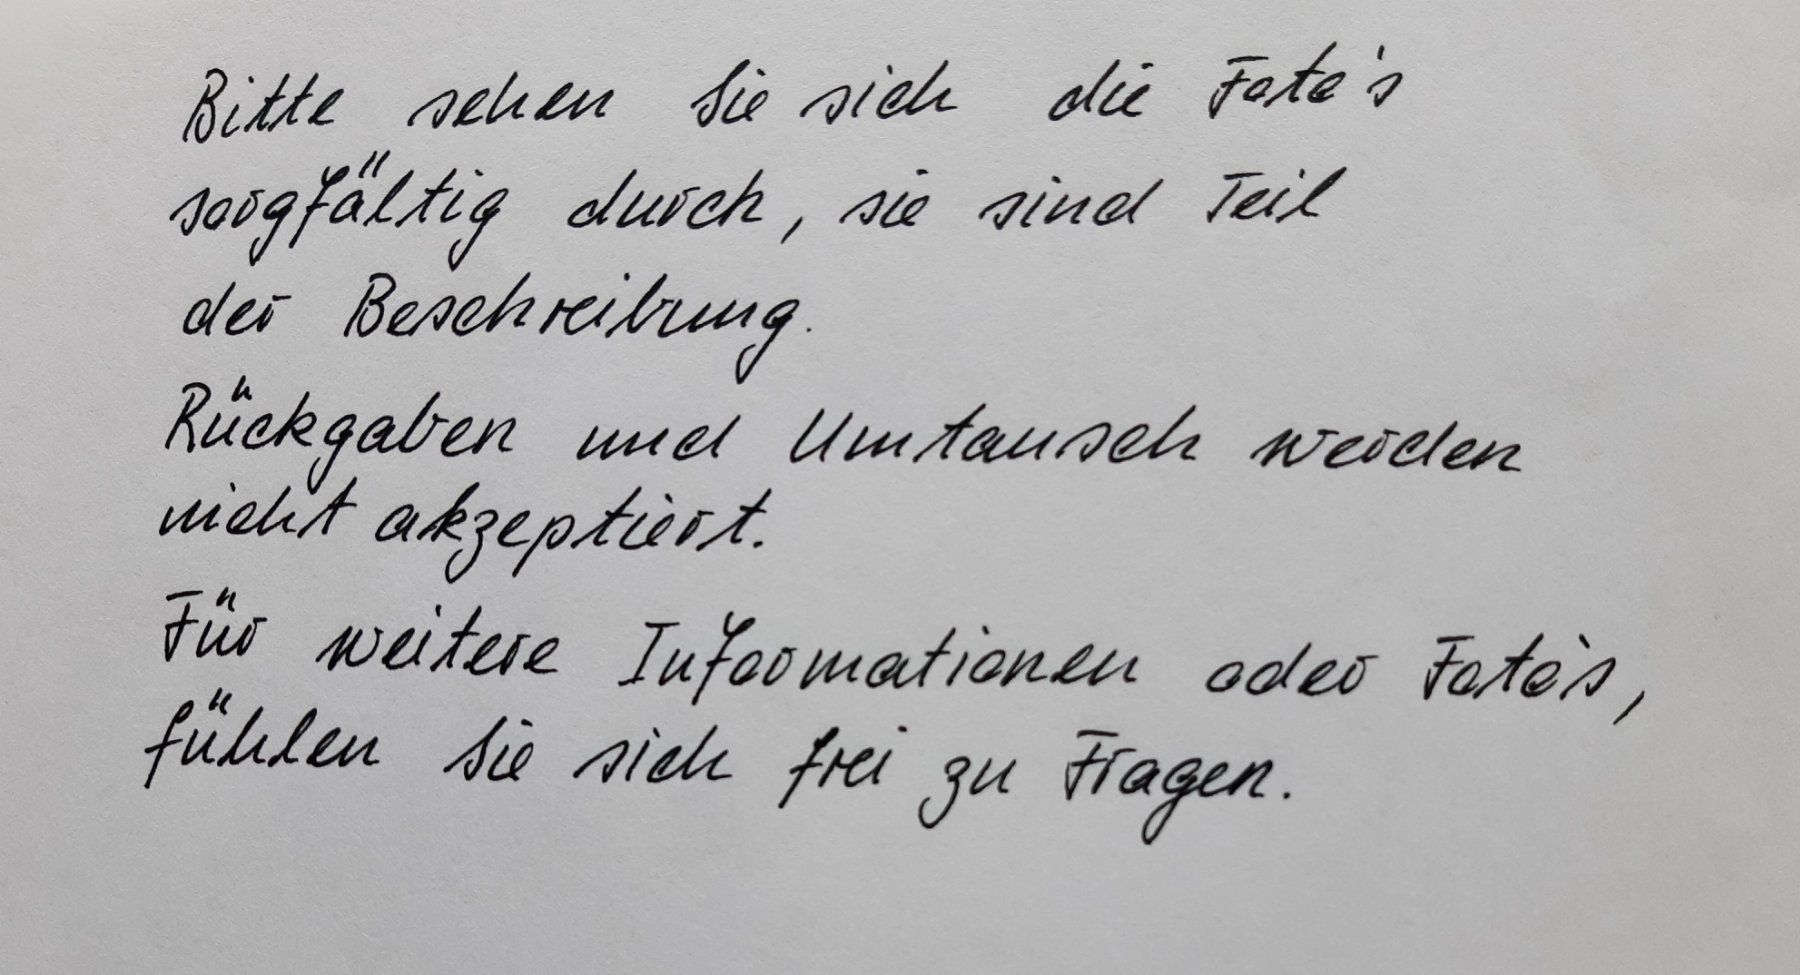 Bitte sehen Sie sich die Foto's
sorgfältig durch, sie sind Teil
der Beschreibung.
Rückgaben und Umtausch werden
nicht akzeptiert.
Für weitere Informationen oder Foto's,
fühlen Sie sich frei zu Fragen.